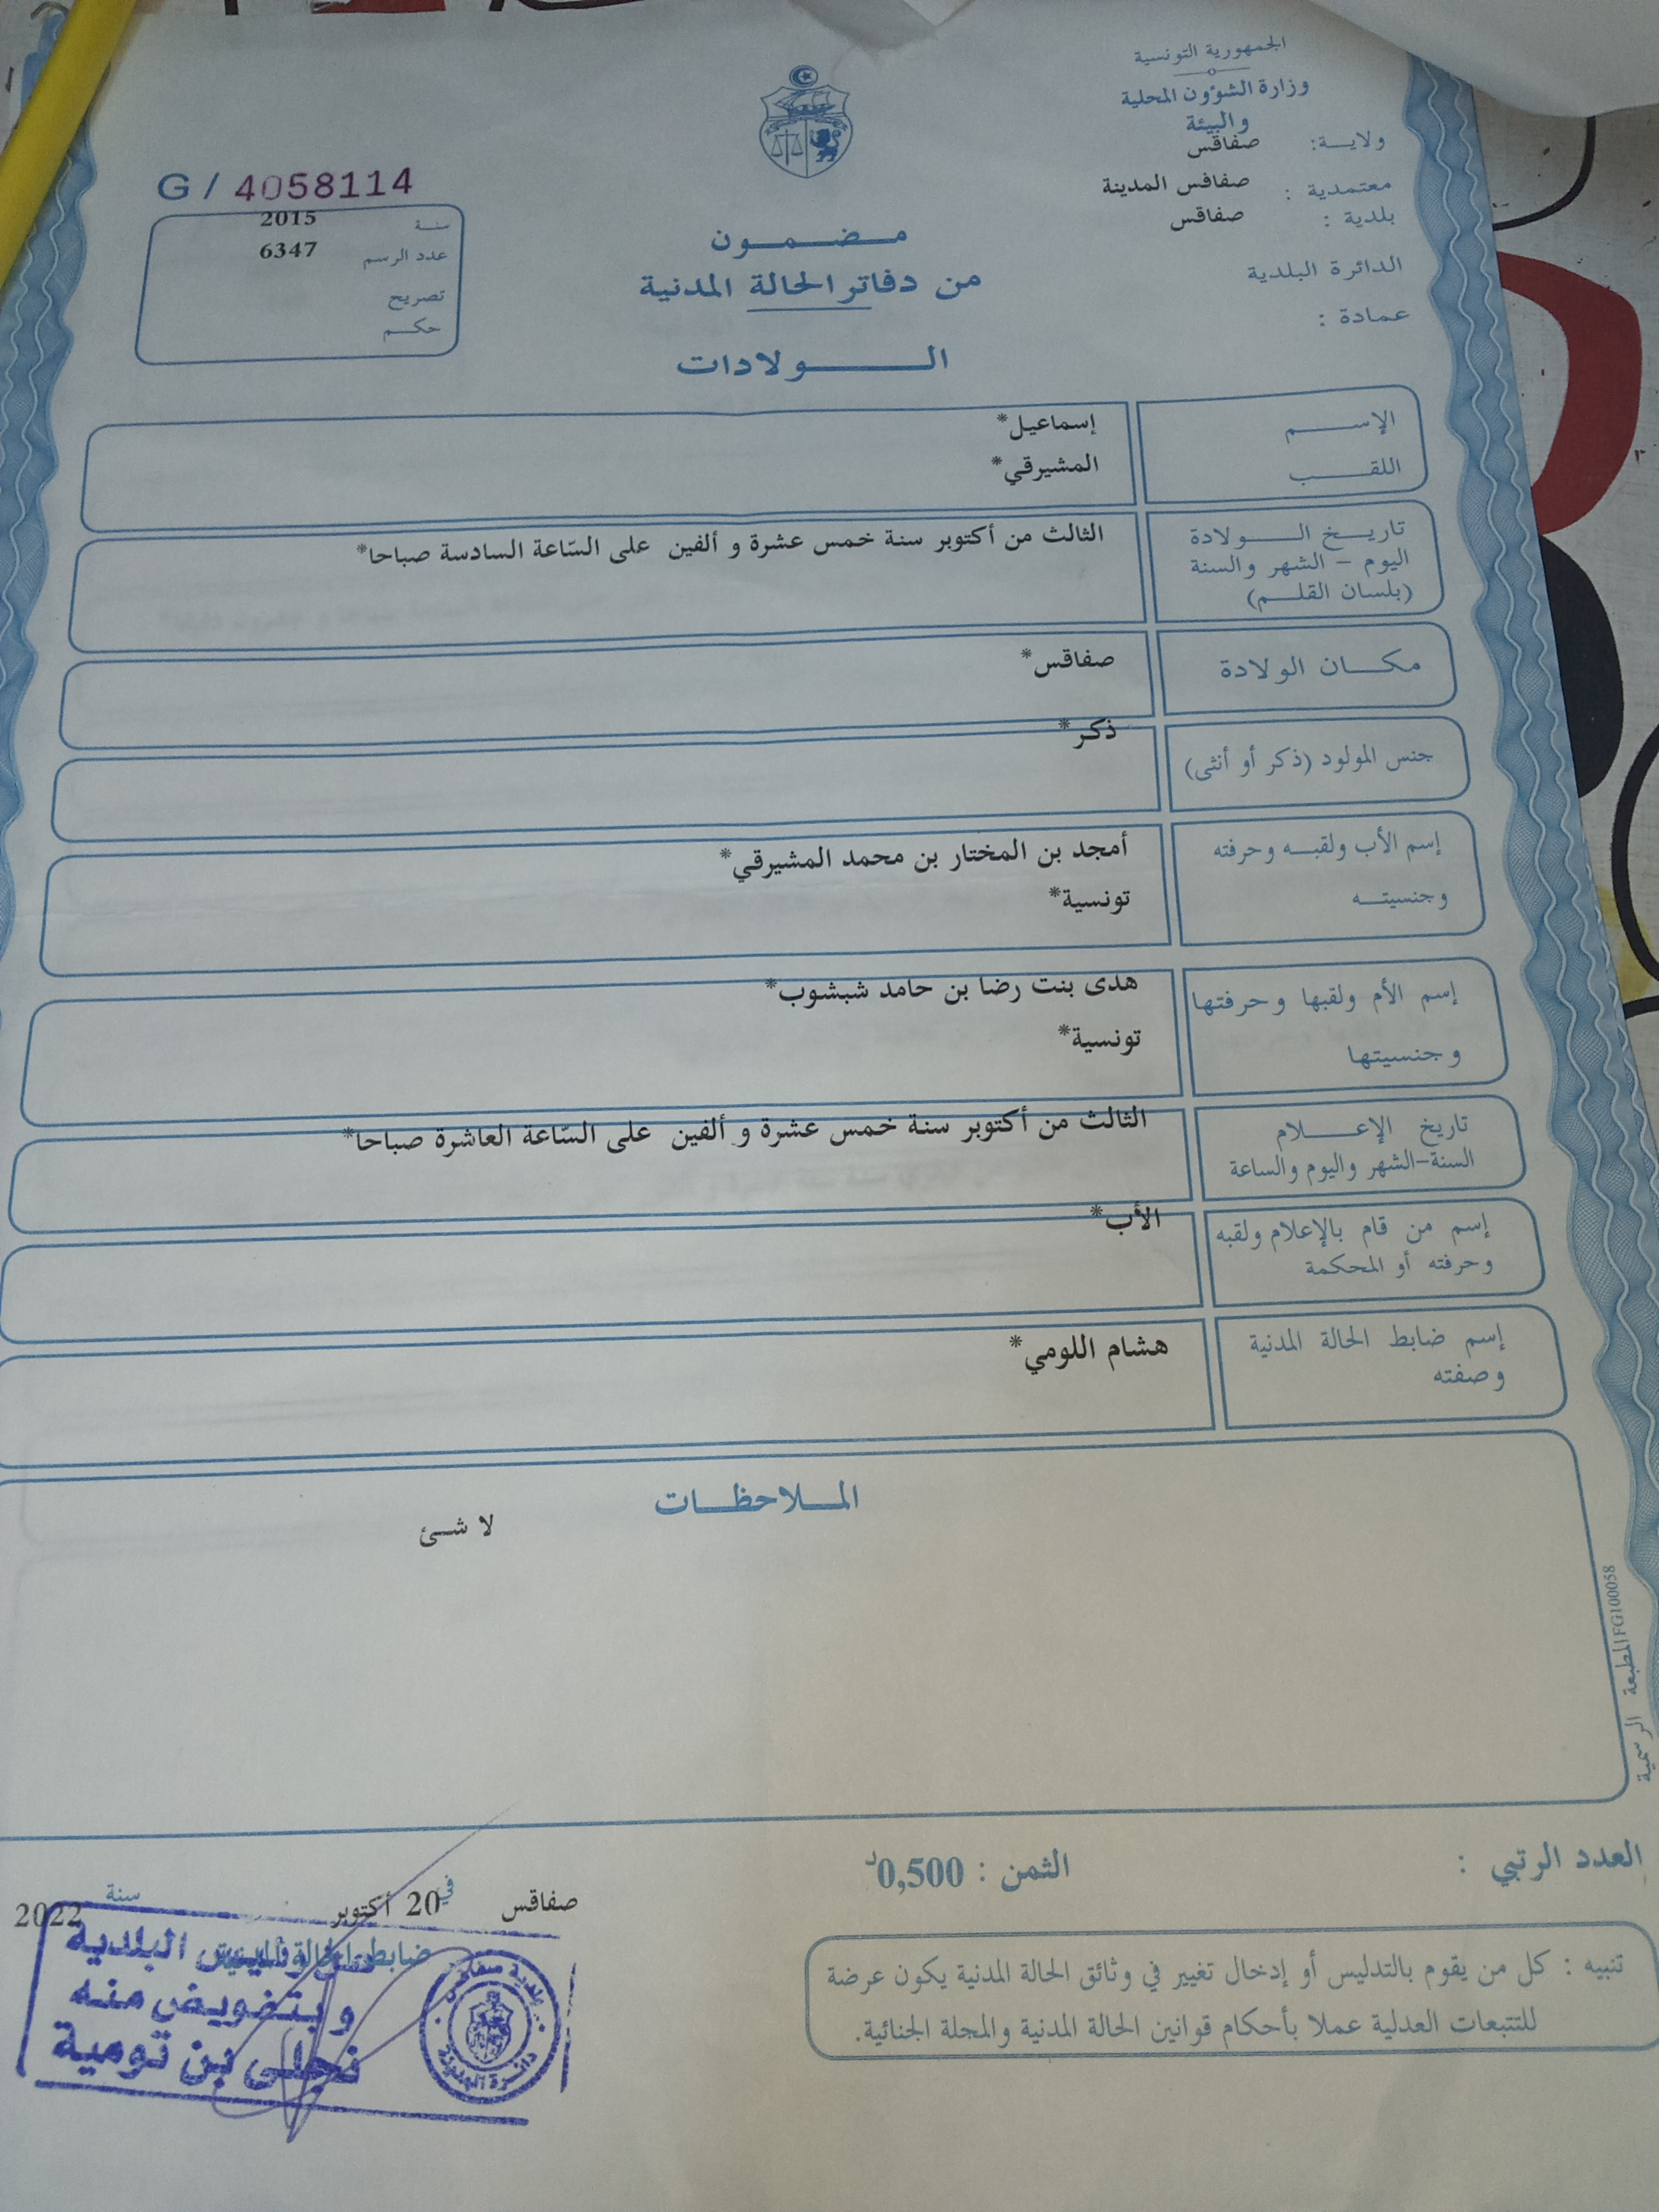 الجمهورية التونسية
وزارة الشؤون المحلية
والبيئة
ولاية: صفاقس
معتمدية : صفاقس المدينة
بلدية : صفاقس
الدائرة البلدية
عمادة :
G / 4058114
سنة 2015
عدد الرسم 6347
تصريح
حكم
مضمون
من دفاتر الحالة المدنية
الولادات
الإسم إسماعيل*
اللقب المشيرقي*
تاريخ الولادة الثالث من أكتوبر سنة خمس عشرة و ألفين على السّاعة السادسة صباحا*
اليوم - الشهر والسنة
(بلسان القلم)
مكان الولادة صفاقس*
جنس المولود (ذكر أو أنثى) ذكر*
إسم الأب ولقبه وحرفته أمجد بن المختار بن محمد المشيرقي*
وجنسيته تونسية*
إسم الأم ولقبها وحرفتها هدى بنت رضا بن حامد شبشوب*
وجنسيتها تونسية*
تاريخ الإعلام الثالث من أكتوبر سنة خمس عشرة و ألفين على السّاعة العاشرة صباحا*
السنة-الشهر واليوم والساعة
إسم من قام بالإعلام ولقبه الأب*
وحرفته أو المحكمة
إسم ضابط الحالة المدنية هشام اللومي*
وصفته
الملاحظات
لا شئ
المطبعة الرسمية FG100058
العدد الرتبي :
الثمن : 0,500د
صفاقس في 20 أكتوبر سنة 2022
ضابط الحالة المدنية
رئيس البلدية
وبتفويض منه
نجلى بن تومية
بلدية صفاقس
دائرة المدينة
تنبيه : كل من يقوم بالتدليس أو إدخال تغيير في وثائق الحالة المدنية يكون عرضة
للتتبعات العدلية عملا بأحكام قوانين الحالة المدنية والمجلة الجنائية.